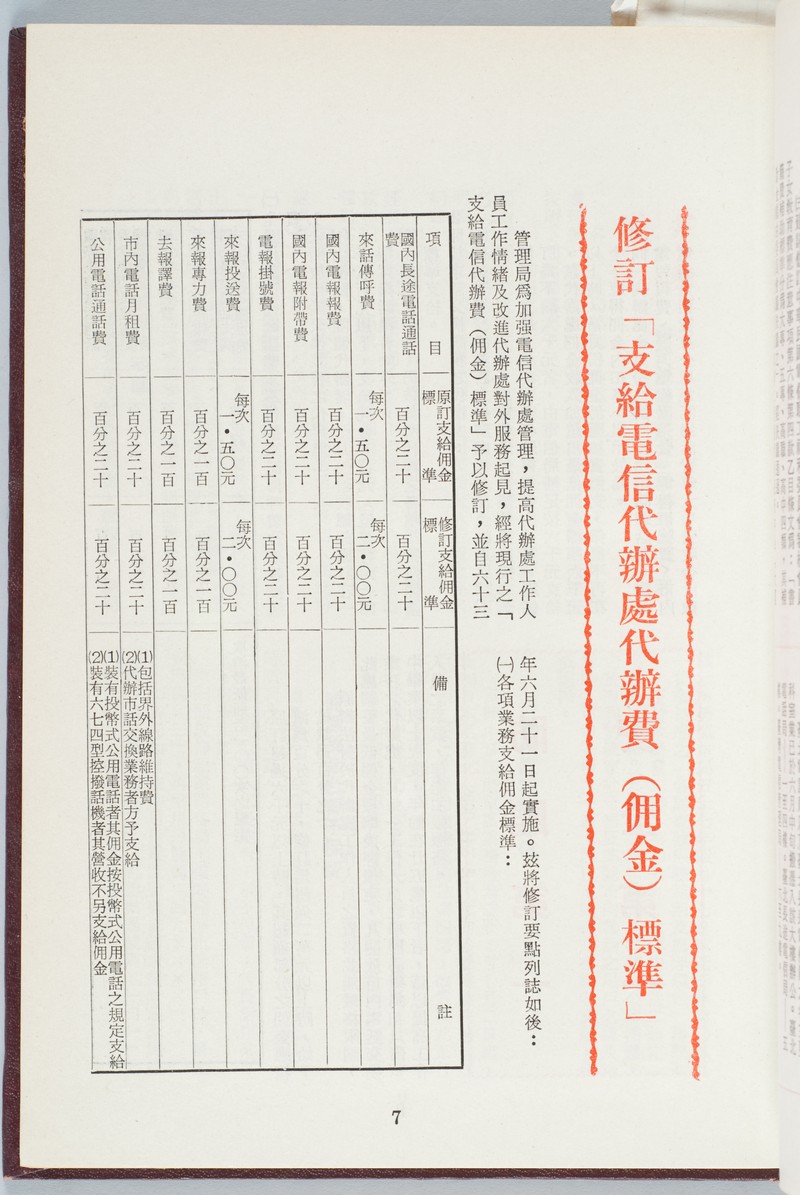 修訂「支給電信代辦處代辦費（佣金）標準」
管理局為加强電信代辦處管理，提高代辦處工作人
員工作情緒及改進代辦處對外服務起見，經將現行之「
支給電信代辦費（佣金）標準」予以修訂，並自六十三
年六月二十一日起實施。茲將修訂要點列誌如後：
㈠各項業務支給佣金標準：
項目
原訂支給佣金標準
修訂支給佣金標準
備註
國內長途電話通話費
百分之二十
百分之二十
來話傳呼費
每次一・五〇元
每次二・〇〇元
國內電報報費
百分之二十
百分之二十
國內電報附帶費
百分之二十
百分之二十
電報掛號費
百分之二十
百分之二十
來報投送費
每次一・五〇元
每次二・〇〇元
來報專力費
百分之一百
百分之一百
去報譯費
百分之一百
百分之一百
市內電話月租費
百分之二十
百分之二十
⑴包括界外線路維持費
⑵代辦市話交換業務者方予支給
公用電話通話費
百分之二十
百分之二十
⑴裝有投幣式公用電話者其佣金按投幣式公用電話之規定支給
⑵裝有六七四型控撥話機者其營收不另支給佣金
7